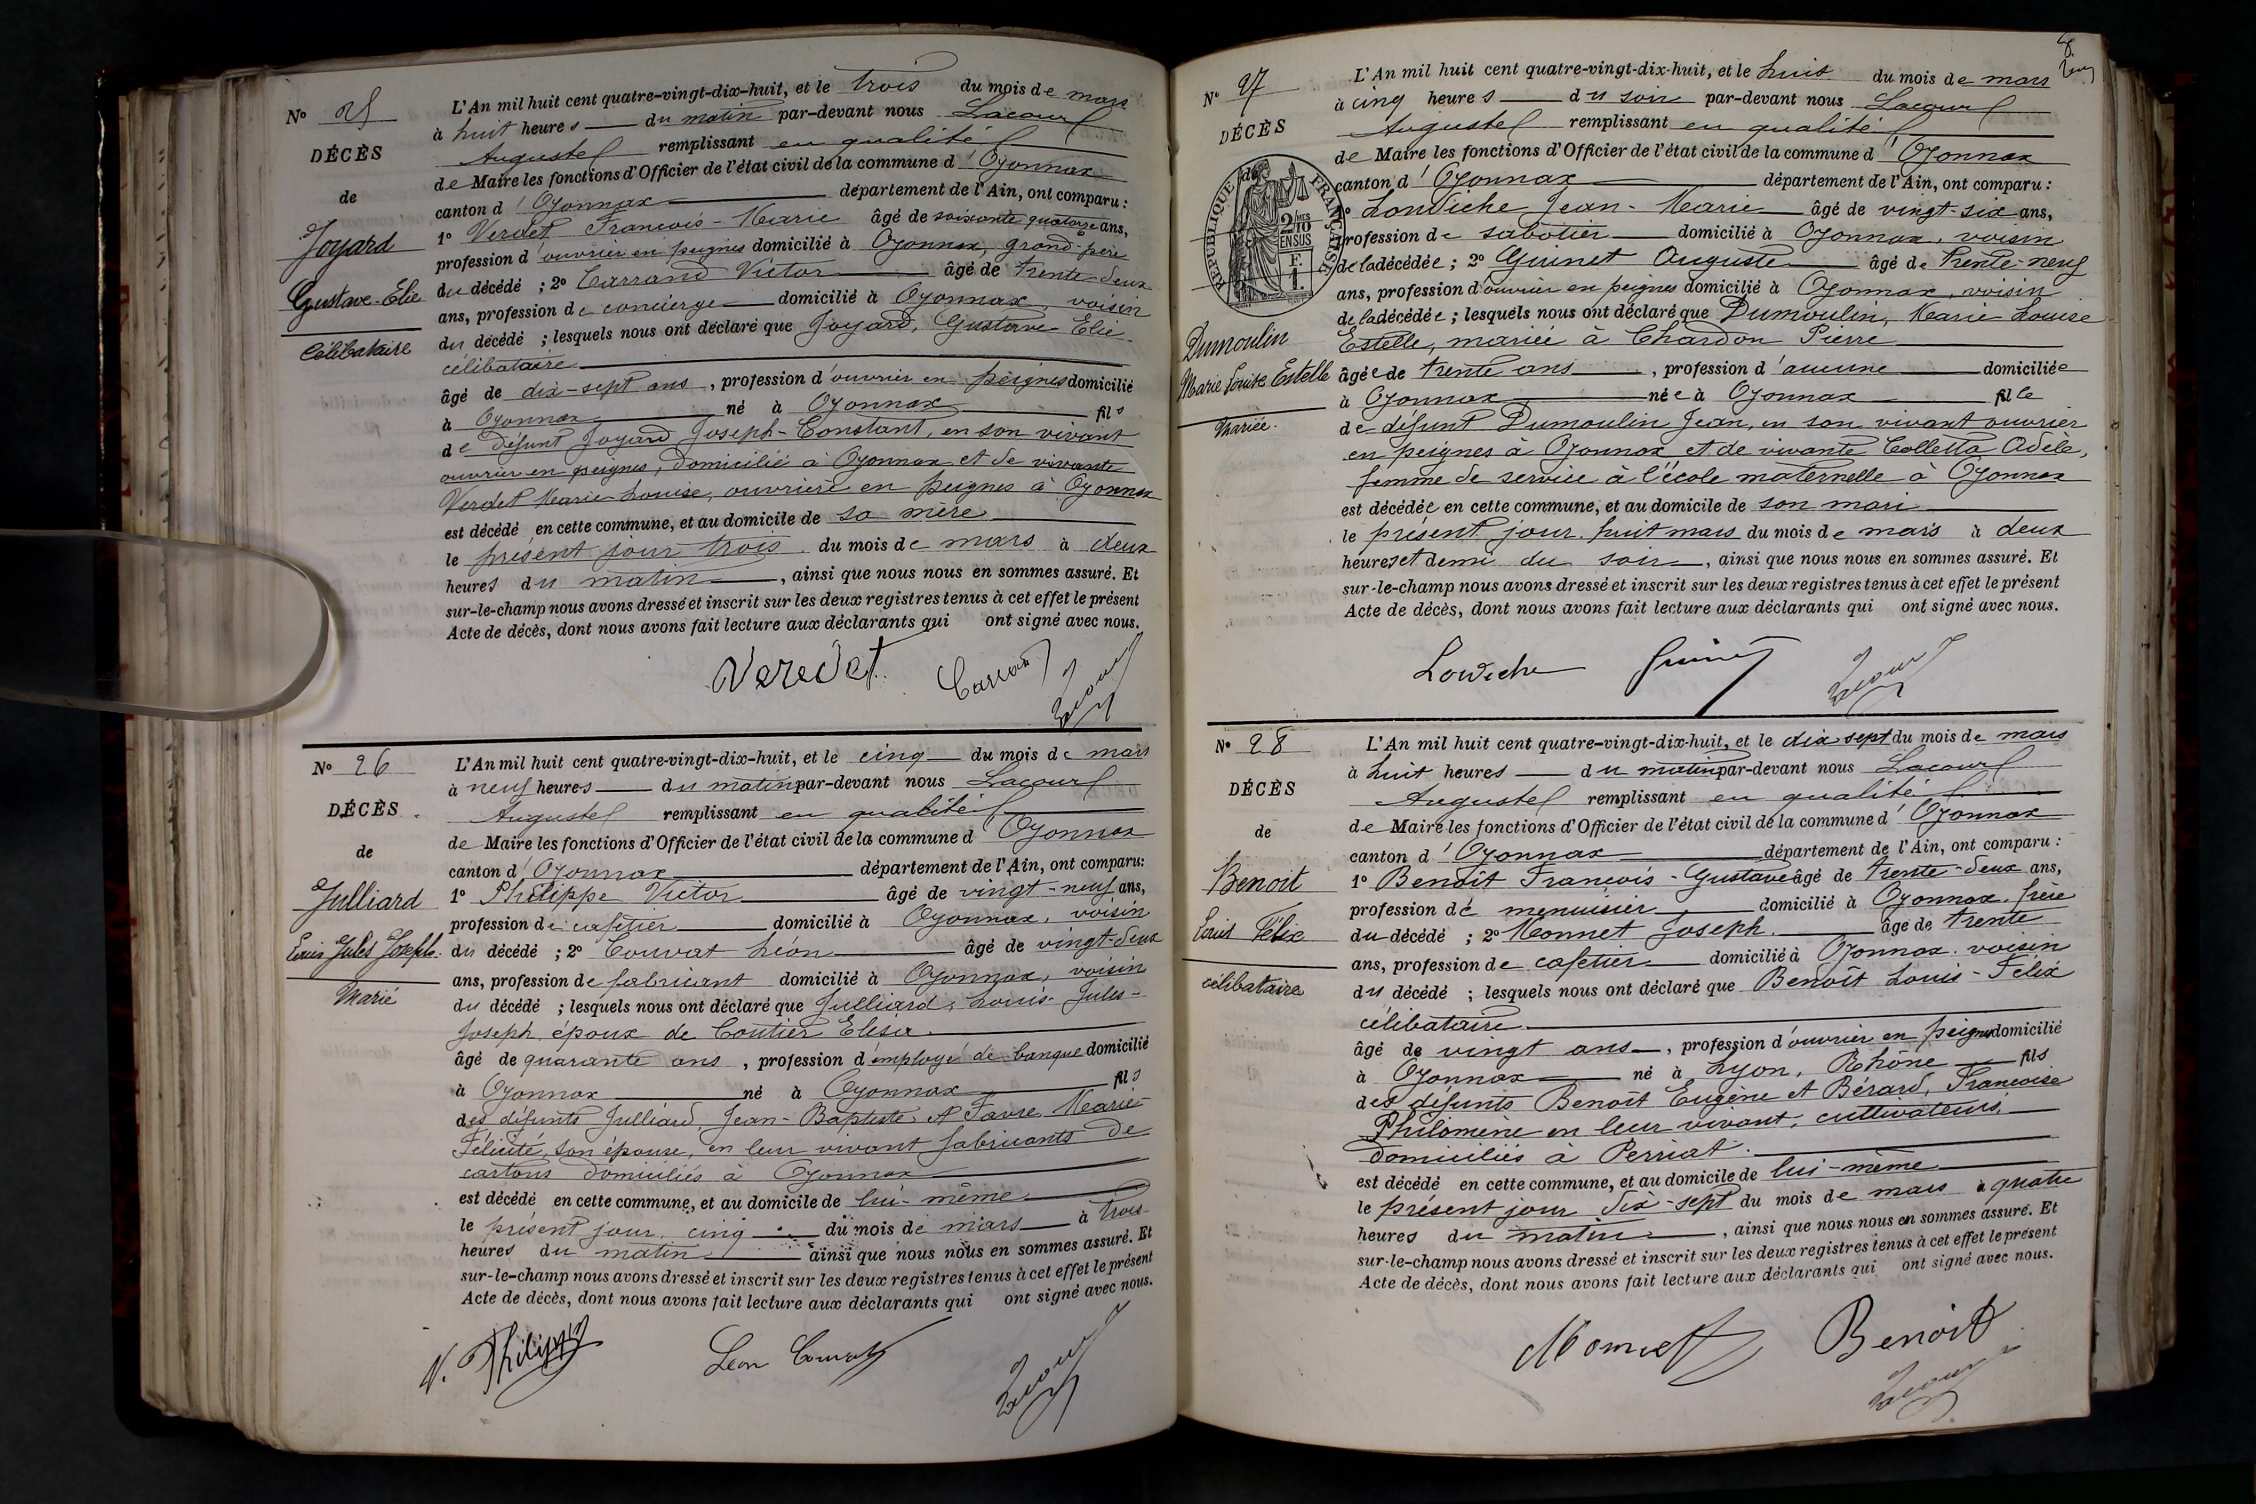 N° 25
DÉCÈS
de
Joyard
Gustave-Elie
célibataire
L'An mil huit cent quatre-vingt-dix-huit, et le trois du mois de mars
à huit heures du matin par-devant nous Lacour
Auguste remplissant en qualité
de Maire les fonctions d'Officier de l'état civil de la commune d'Oyonnax
canton d'Oyonnax département de l'Ain, ont comparu :
1° Verdet François-Marie âgé de soixante quatorze ans,
profession d'ouvrier en peignes domicilié à Oyonnax, grand-père
du décédé ; 2° Carrand Victor âgé de trente-deux
ans, profession de concierge domicilié à Oyonnax, voisin
du décédé ; lesquels nous ont déclaré que Joyard, Gustave Elie
célibataire
âgé de dix-sept ans, profession d'ouvrier en peignes domicilié
à Oyonnax né à Oyonnax fils
de défunt Joyard Joseph-Constant, en son vivant
ouvrier en peignes, domicilié à Oyonnax et de vivante
Verdet Marie Louise, ouvrière en peignes à Oyonnax
est décédé en cette commune, et au domicile de sa mère
le présent jour trois du mois de mars à deux
heures du matin, ainsi que nous nous en sommes assuré. Et
sur-le-champ nous avons dressé et inscrit sur les deux registres tenus à cet effet le présent
Acte de décès, dont nous avons fait lecture aux déclarants qui ont signé avec nous.
Veredet Carrand Lacour
N° 26
DÉCÈS
de
Julliard
Louis Jules Joseph
Marié
L'An mil huit cent quatre-vingt-dix-huit, et le cinq du mois de mars
à neuf heures du matin par-devant nous Lacour
Auguste remplissant en qualité
de Maire les fonctions d'Officier de l'état civil de la commune d'Oyonnax
canton d'Oyonnax département de l'Ain, ont comparu:
1° Philippe Victor âgé de vingt-neuf ans,
profession de cafetier domicilié à Oyonnax, voisin
du décédé ; 2° Couvat Léon âgé de vingt-deux
ans, profession de fabricant domicilié à Oyonnax, voisin
du décédé ; lesquels nous ont déclaré que Julliard, Louis-Jules-
Joseph époux de Coutier Elisa
âgé de quarante ans, profession d'employé de banque domicilié
à Oyonnax né à Oyonnax fils
des défunts Julliard, Jean-Baptiste et Favre Marie-
Félicité, son épouse, en leur vivant fabricants de
cartons domiciliés à Oyonnax
est décédé en cette commune, et au domicile de lui-même
le présent jour, cinq du mois de mars à trois
heures du matin ainsi que nous nous en sommes assuré. Et
sur-le-champ nous avons dressé et inscrit sur les deux registres tenus à cet effet le présent
Acte de décès, dont nous avons fait lecture aux déclarants qui ont signé avec nous.
V. Philippe Léon Couvat Lacour
8.
N° 27
DÉCÈS
de
RÉPUBLIQUE FRANÇAISE
2/10 EN SUS
F.
1.
Dumoulin
Marie Louise Estelle
Mariée.
L'An mil huit cent quatre-vingt-dix-huit, et le huit du mois de mars
à cinq heures du soir par-devant nous Lacour
Auguste remplissant en qualité
de Maire les fonctions d'Officier de l'état civil de la commune d'Oyonnax
canton d'Oyonnax département de l'Ain, ont comparu :
1° Lowiche Jean-Marie âgé de vingt-six ans,
profession de sabotier domicilié à Oyonnax, voisin
de la décédée ; 2° Guinet Auguste âgé de trente-neuf
ans, profession d'ouvrier en peignes domicilié à Oyonnax, voisin
de la décédée ; lesquels nous ont déclaré que Dumoulin, Marie Louise
Estelle, mariée à Chardon Pierre
âgée de trente ans, profession d'aucune domiciliée
à Oyonnax née à Oyonnax fille
de défunt Dumoulin Jean, en son vivant ouvrier
en peignes à Oyonnax et de vivante Colletta Adèle,
femme de service à l'école maternelle à Oyonnax
est décédée en cette commune, et au domicile de son mari
le présent jour huit mars du mois de mars à deux
heures et demi du soir, ainsi que nous nous en sommes assuré. Et
sur-le-champ nous avons dressé et inscrit sur les deux registres tenus à cet effet le présent
Acte de décès, dont nous avons fait lecture aux déclarants qui ont signé avec nous.
Lowiche Guinet Lacour
N° 28
DÉCÈS
de
Benoit
Louis Félix
célibataire
L'An mil huit cent quatre-vingt-dix-huit, et le dix sept du mois de mars
à huit heures du matin par-devant nous Lacour
Auguste remplissant en qualité
de Maire les fonctions d'Officier de l'état civil de la commune d'Oyonnax
canton d'Oyonnax département de l'Ain, ont comparu :
1° Benoît François-Gustave âgé de trente-deux ans,
profession de menuisier domicilié à Oyonnax, frère
du décédé ; 2° Monnet Joseph âgé de trente
ans, profession de cafetier domicilié à Oyonnax voisin
du décédé ; lesquels nous ont déclaré que Benoît Louis-Félix
célibataire
âgé de vingt ans, profession d'ouvrier en peignes domicilié
à Oyonnax né à Lyon, Rhône fils
des défunts Benoît Eugène et Bérard, Françoise
Philomène en leur vivant, cultivateurs
domiciliés à Perriat
est décédé en cette commune, et au domicile de lui-même
le présent jour dix-sept du mois de mars à quatre
heures du matin, ainsi que nous nous en sommes assuré. Et
sur-le-champ nous avons dressé et inscrit sur les deux registres tenus à cet effet le présent
Acte de décès, dont nous avons fait lecture aux déclarants qui ont signé avec nous.
Monnet Benoit Lacour